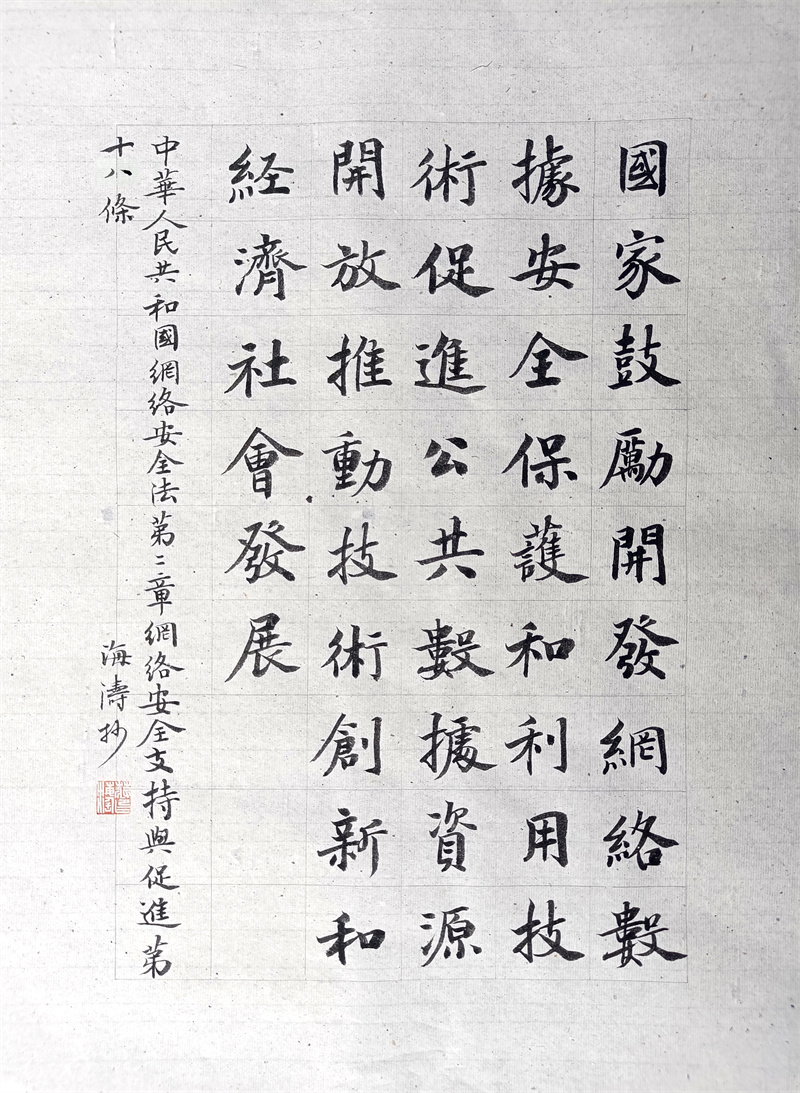 國家鼓勵開發網絡數
據安全保護和利用技
術促進公共數據資源
開放推動技術創新和
経濟社會發展
中華人民共和國網絡安全法第二章網絡安全支持與促進第
十八條
海濤抄